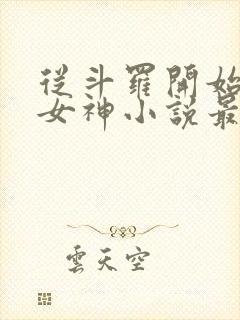 從斗羅開始
女神小說最
雲天空